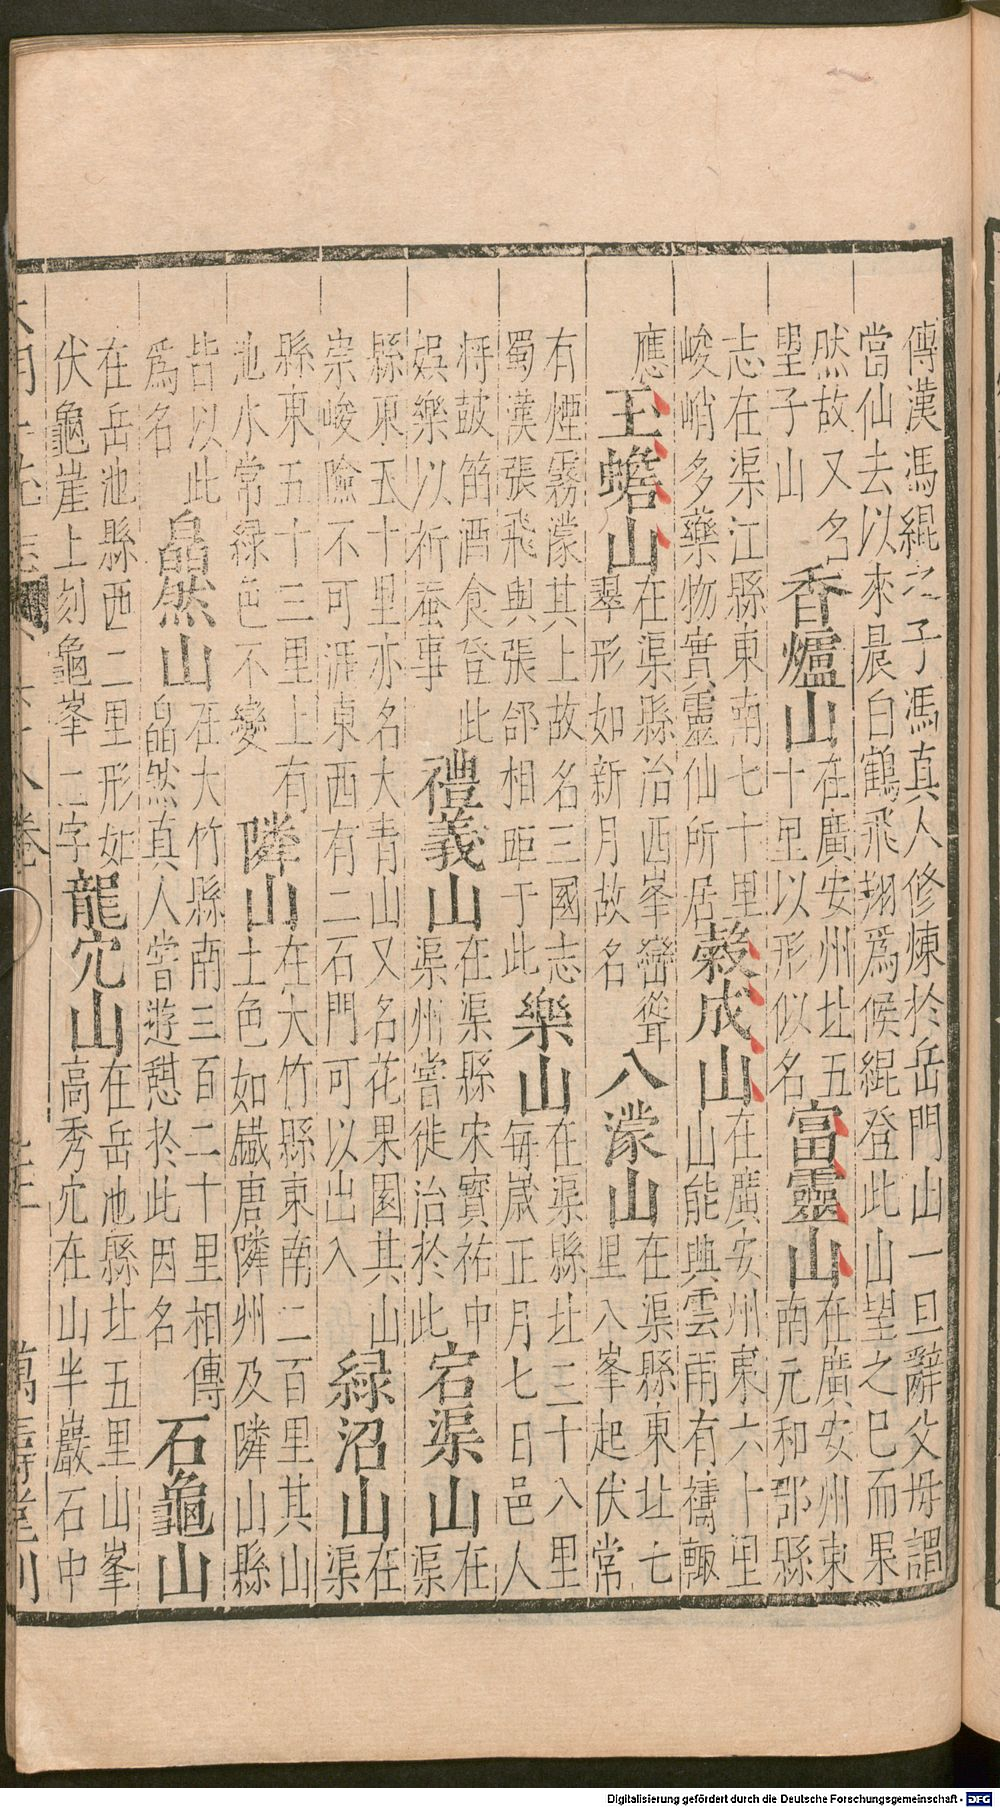 傳漢馮緄之子馮真人修煉於岳門山一旦辭父母謂
當仙去以來晨白鶴飛翔爲候緄登此山望之巳而果
然故又名
望子山
香爐山
在廣安州北五
十里以形似名
富靈山
在廣安州東
南元和郡縣
志在渠江縣東南七十里
峻峭多藥物實靈仙所居
榖成山
在廣安州東六十里
山能興雲雨有禱輒
應
玉蟾山
在渠縣治西峯巒聳
翠形如新月故名
八濛山
在渠縣東北七
里八峯起伏常
有煙霧濛其上故名三國志
蜀漢張飛與張郃相距于此
樂山
在渠縣北三十八里
每歲正月七日邑人
持鼓笛酒食登此
娛樂以祈蚕事
禮義山
在渠縣宋寶祐中
渠州嘗徙治於此
宕渠山
在
渠
縣東五十里亦名大青山又名花果園其山
崇峻險不可涯東西有二石門可以出入
緑沼山
在
渠
縣東五十三里上有
池水常緑色不變
隣山
在大竹縣東南二百里其山
土色如鐵唐隣州及隣山縣
皆以此
爲名
皛然山
在大竹縣南三百二十里相傳
皛然真人嘗遊憇於此因名
石龜山
在岳池縣西二里形如
伏龜崖上刻龜峯二字
龍穴山
在岳池縣北五里山峯
高秀穴在山半巖石中
萬壽堂刊
Digitalisierung gefördert durch die Deutsche Forschungsgemeinschaft - DFG